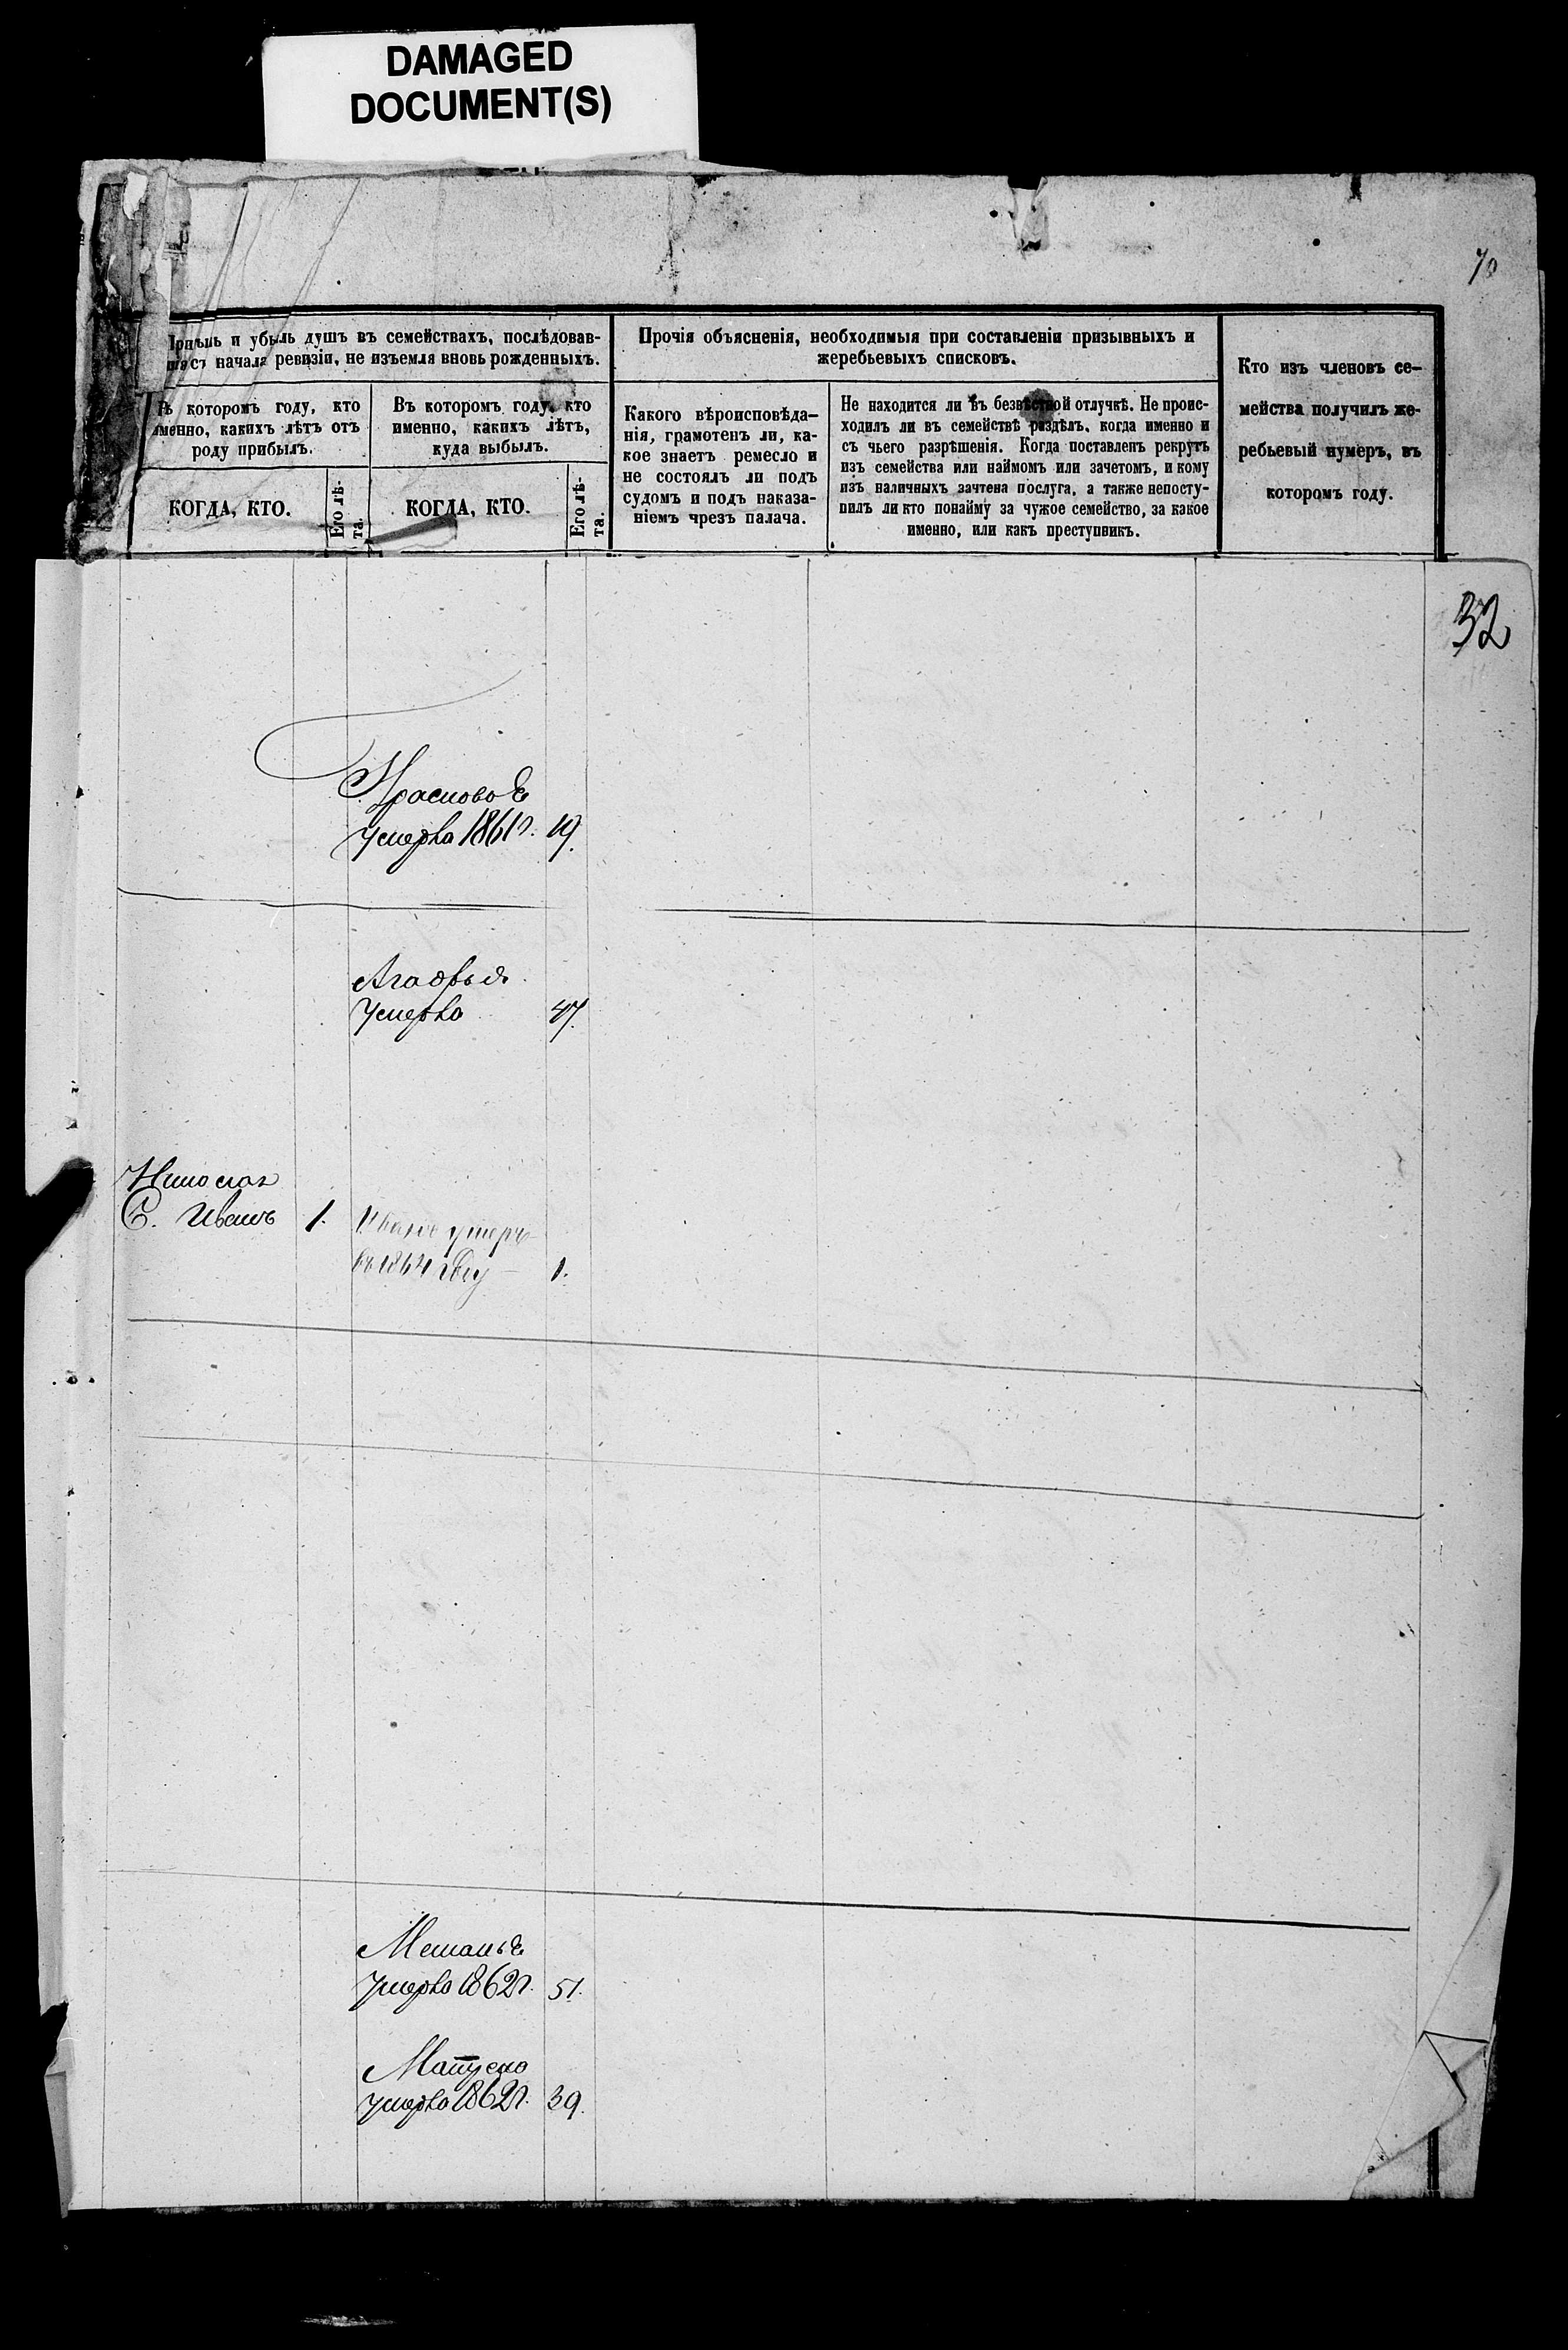 DAMAGED
DOCUMENT(S)
70
и убыль душъ въ семействахъ, послѣдовав-
начала ревизіи, не изъемля вновь рожденныхъ.
Прочія объясненія, необходимыя при составленіи призывныхъ и
жеребьевыхъ списковъ.
Кто изъ членовъ се-
мейства получилъ же-
ребьевый нумеръ, въ
которомъ году.
которомъ году, кто
именно, какихъ лѣтъ отъ
роду прибылъ.
Въ которомъ году, кто
именно, какихъ лѣтъ,
куда выбылъ.
Какого вѣроисповѣда-
нія, грамотенъ ли, ка-
кое знаетъ ремесло и
не состоялъ ли подъ
судомъ и подъ наказа-
ніемъ чрезъ палача.
Не находится ли въ безвѣстной отлучкѣ. Не проис-
ходилъ ли въ семействѣ раздѣлъ, когда именно и
съ чьего разрѣшенія. Когда поставленъ рекрутъ
изъ семейства или наймомъ или зачетомъ, и кому
изъ наличныхъ зачтена послуга, а также непосту-
пилъ ли кто понайму за чужое семейство, за какое
именно, или какъ преступникъ.
КОГДА, КТО.
Его лѣ-
та.
КОГДА, КТО.
Его лѣ-
та.
32
умерла 1861г. 19.
Агафья
умерла 47.
С. Иванъ 1.
Иванъ умеръ
въ 1864 году 1.
Меланья
умерла 1862г. 51.
умерла 1862г. 39.